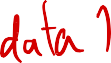 data 1